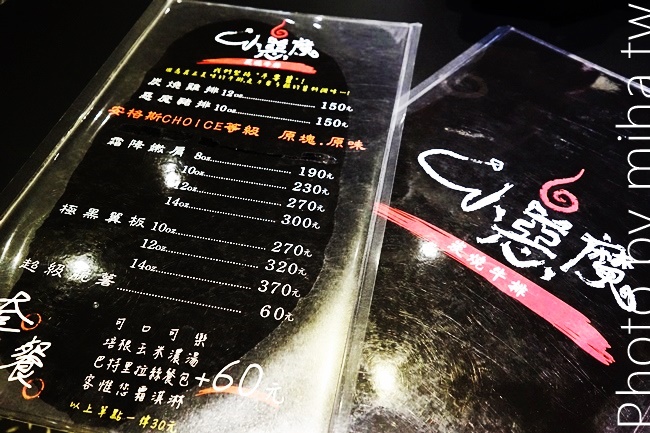 小惡魔
炭燒牛排
我們堅持"不重醬"!
炭燒雞排12oz 150元
惡魔豬排10oz 150元
安格斯CHOICE等級 原塊.原味
霜降嫩肩 8oz 190元
10oz 230元
12oz 270元
14oz 300元
極黑翼板 10oz 270元
12oz 320元
14oz 370元
超級 60元
套餐
可口可樂
培根玉米濃湯
巴特里拉絲餐包
客惟您霜淇淋
+60元
以上單點一律30元
小惡魔
炭燒牛排
Photo by miha.tw